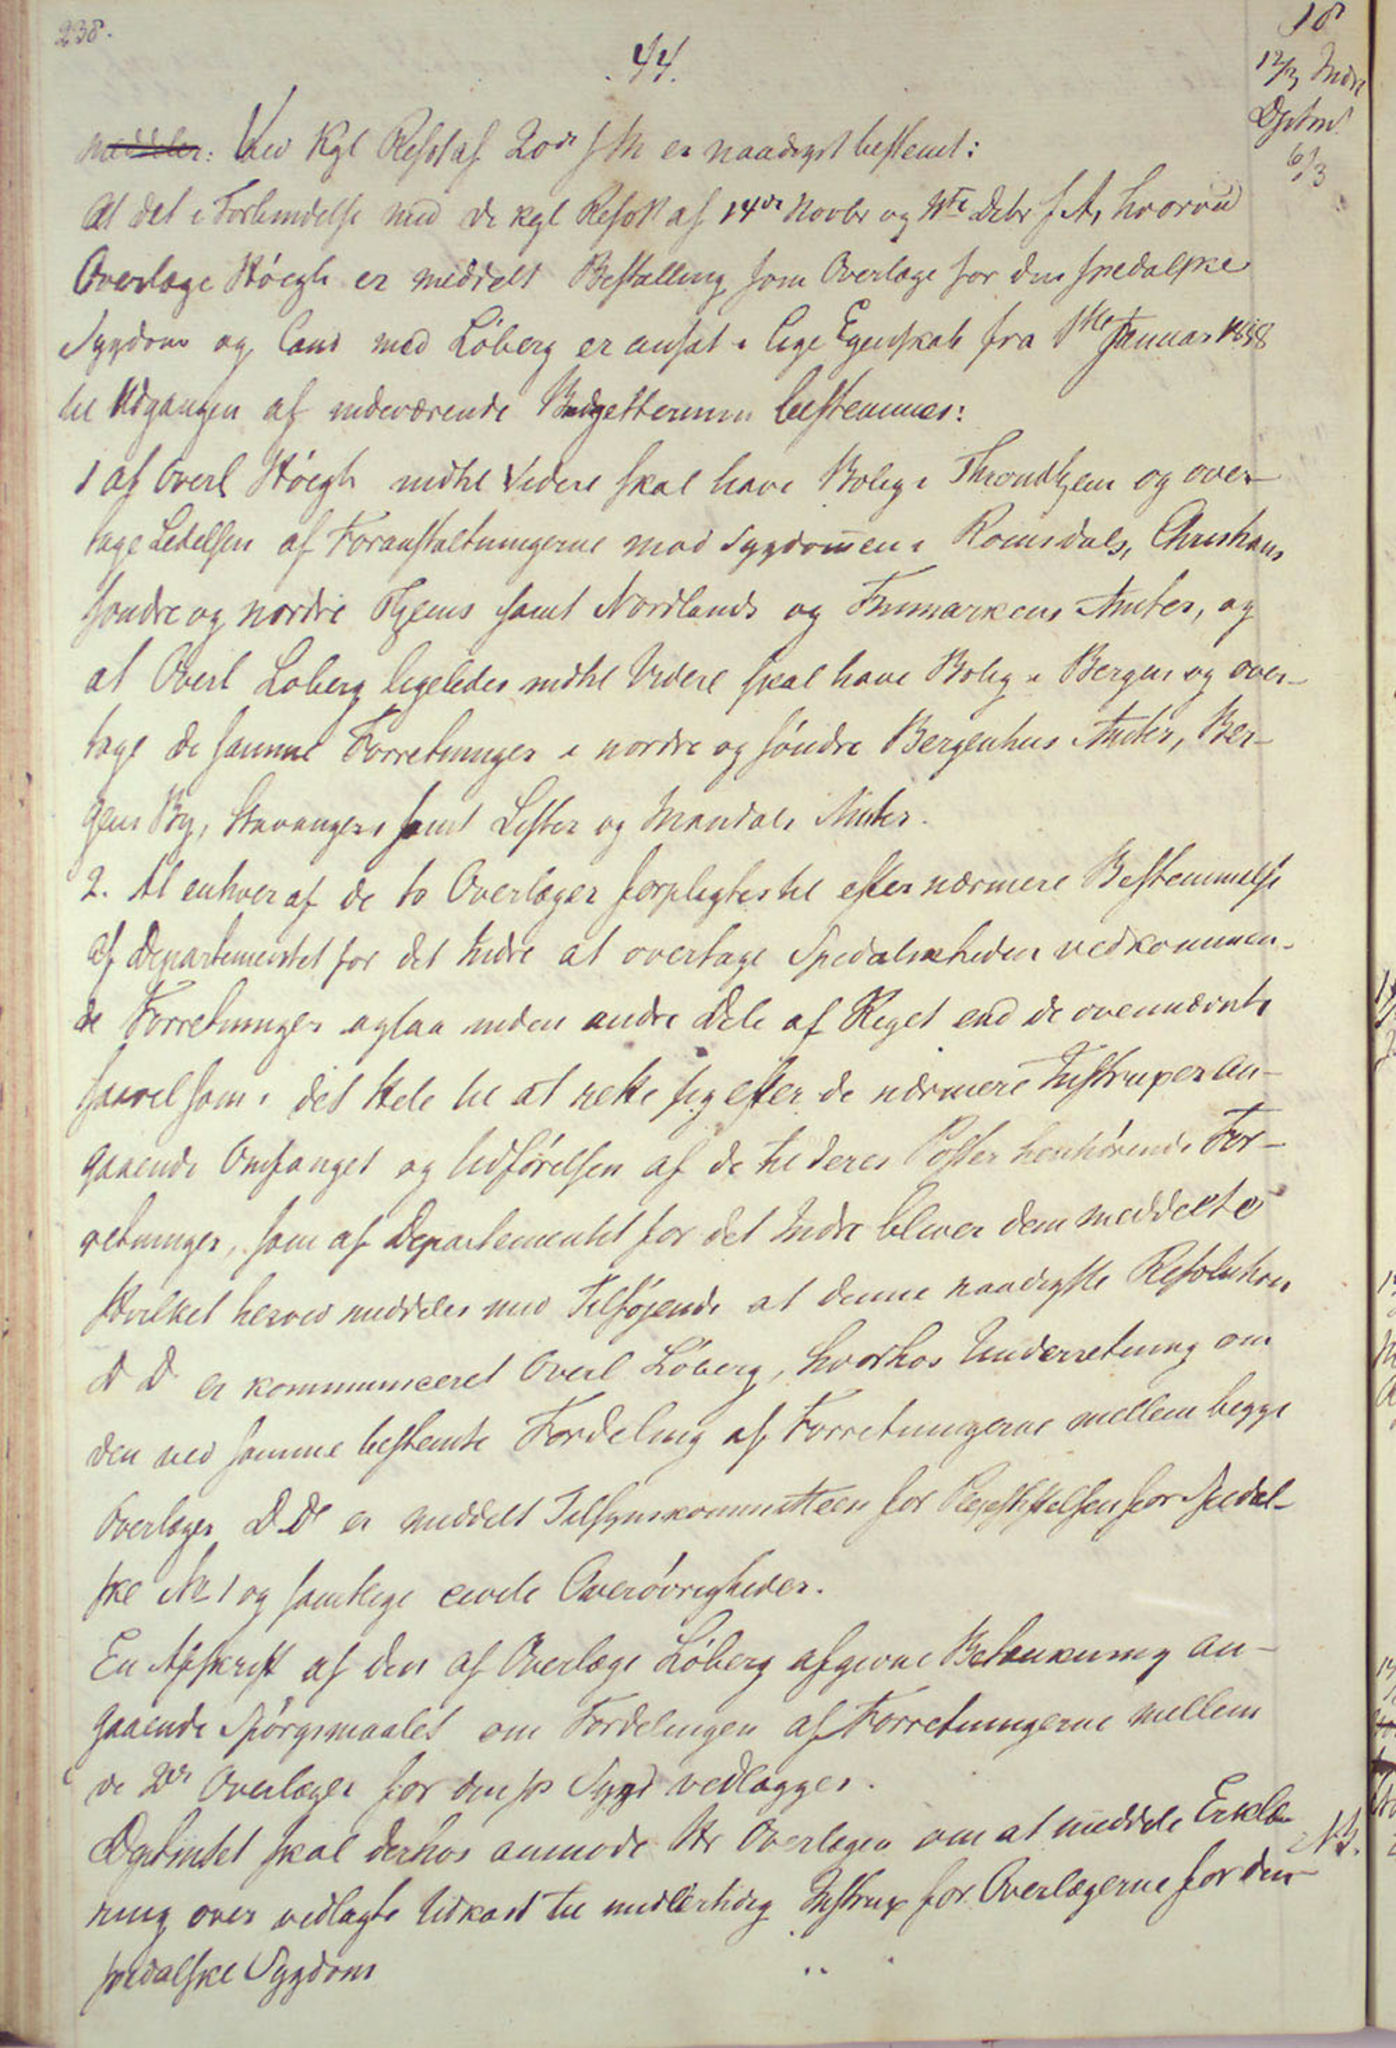 238.
44.
18
12/3 Indre
Dptmt
6/3
meddeler: Ved Kgl Resol af 20de f M er naadigst bestemt:
At det i Forbindelse med de kgl Resoll af 14de Novbr og 11te Debr f. A, hvorved
Overlæge Høegh er meddelt Bestalling som Overlæge for den spedalske
Sygdom og Cand med Løberg er ansat i lige Egenskab fra 1ste Januar 1858
til Udgangen af indeværende Budgettermin bestemmes:
1 at Overl Høegh indtil Videre skal have Bolig i Throndhjem og over-
tage Ledelsen af Foranstaltningerne mod Sygdommen i Romsdals, Christians
søndre og nordre Thjems samt Nordlands og Finmarkens Amter, og
at Overl Løberg ligeledes indtil Videre skal have Bolig i Bergen og over-
tage de samme Forretninger i nordre og søndre Bergenhus Amter, Ber-
gens By, Stavangers samt Lister og Mandals Amter.
2. At enhver af de to Overlæger forpligtes til efter nærmere Bestemmelse
af Departementet for det Indre at overtage Spedalskheden vedkommen-
de Forretninger ogsaa inden andre Dele af Riget end de ovennævnte
saavelsom i det Hele til at rette sig efter de nærmere Instruxer an-
gaaende Omfanget og Udførelsen af de til deres Poster henhørende For-
retninger, som af Departementet for det Indre bliver dem meddelte
Hvilket herved meddeles med Tilføjende at denne naadigste Resolution
D D er kommuniceret Overl Løberg, hvorhos Underretning om
den ved samme bestemte Fordeling af Forretningerne mellem begge
Overlæger D.D. er meddelt Tilsynskommitteen for Plejestiftelsen for Spedal-
ske No 1 og samtlige civile Overøvrigheder.
En Afskrift af den af Overlæge Løberg afgivne Betænkning an-
gaaende Spørgsmaalet om Fordelingen af Forretningerne mellem
de 2de Overlæger for den sp Sygd vedlægges.
Dptmtet skal derhos anmode Hr Overlægen om at meddele Erklæ-
ring over vedlagte Udkast til midlertidig Instrux for Overlægerne for den
spedalske Sygdom